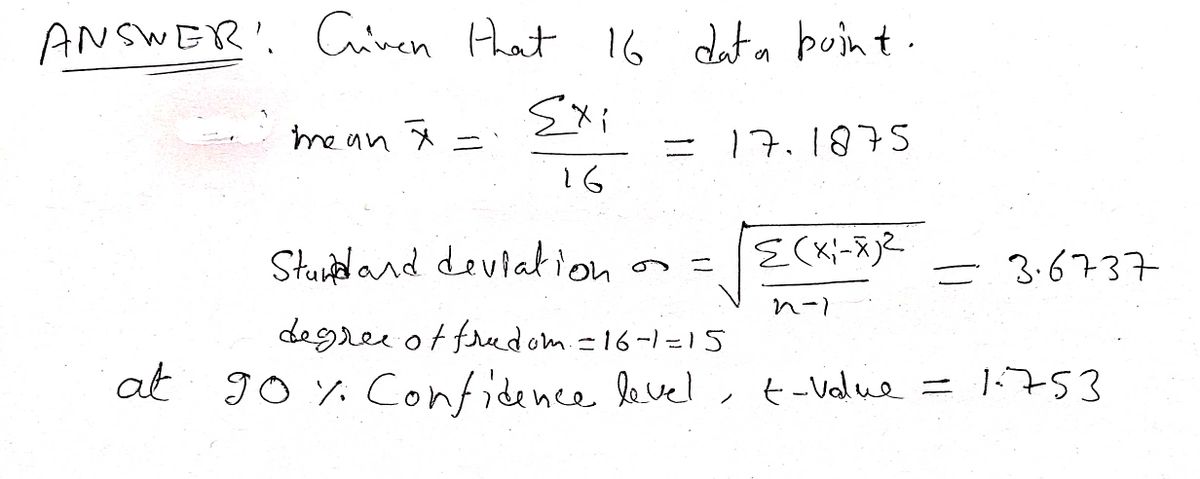 ANSWER: Given that 16 data point.
mean x̄ = Σxi / 16 = 17.1875
Standard deviation σ = √(Σ(xi-x̄)² / n-1) = 3.6737
degree of freedom = 16-1=15
at 90 % Confidence level, t-value = 1.753